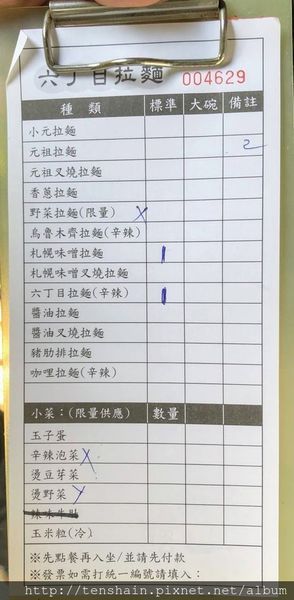 六丁目拉麵 004629
種類 標準 大碗 備註
小元拉麵
元祖拉麵 2
元祖叉燒拉麵
香蔥拉麵
野菜拉麵(限量) X
烏魯木齊拉麵(辛辣)
札幌味噌拉麵 1
札幌味噌叉燒拉麵
六丁目拉麵(辛辣) 1
醬油拉麵
醬油叉燒拉麵
豬肋排拉麵
咖哩拉麵(辛辣)
小菜:(限量供應) 數量
玉子蛋
辛辣泡菜 X
燙豆芽菜
燙野菜 X
玉米粒(冷)
※先點餐再入坐/並請先付款
※發票如需打統一編號請填入:
http://tenshain.pixnet.net/album